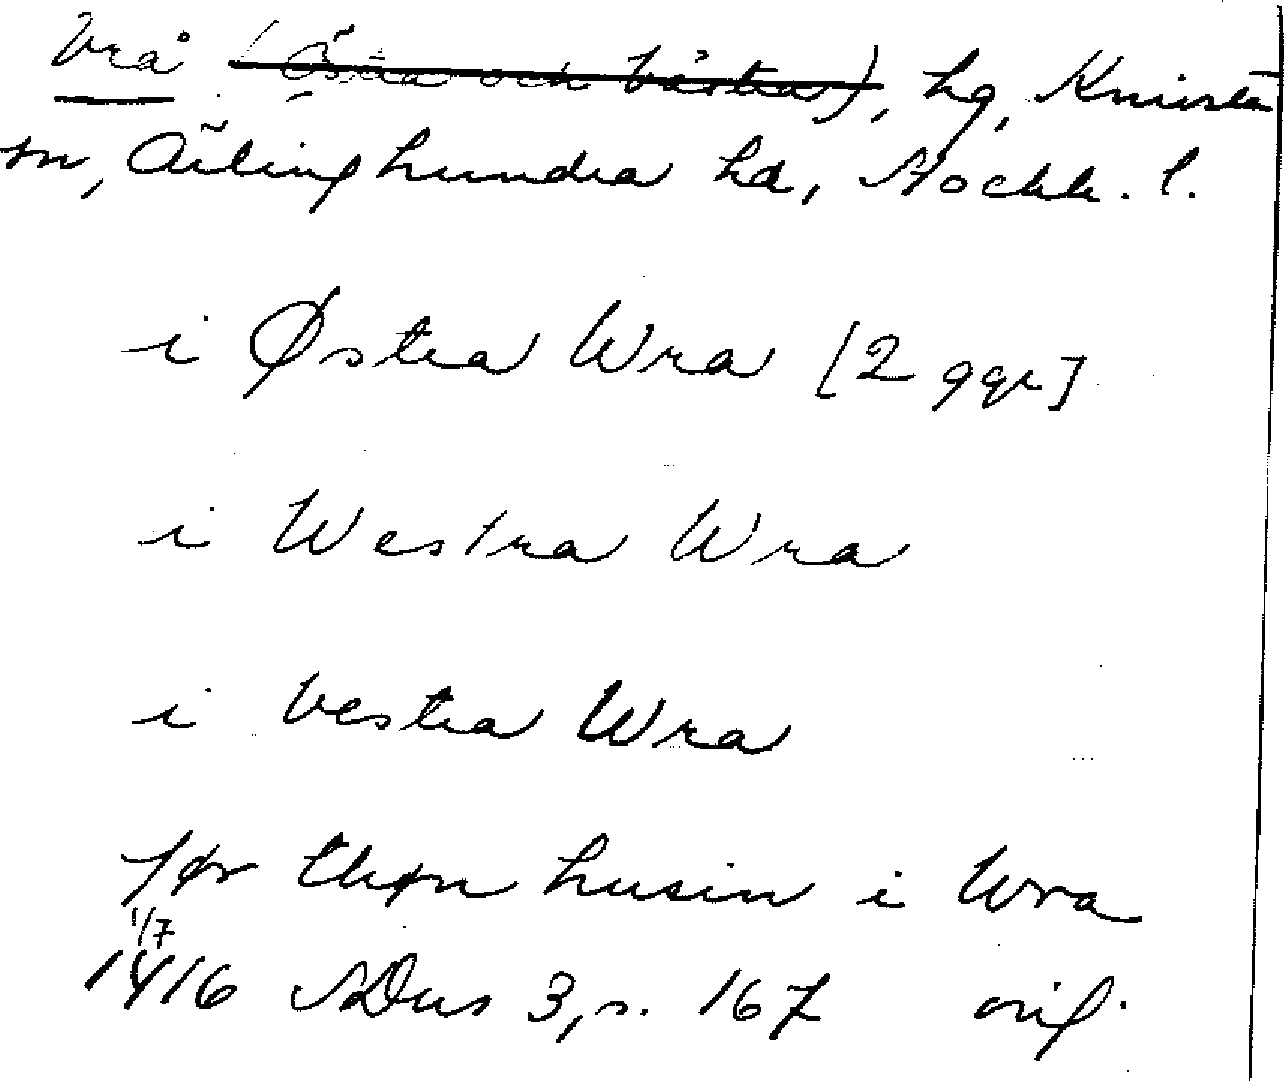 Vrå (Östra och Västra), hg, Knivsta
sn, Ärlinghundra hd, Stockh. l.
i Østra Wra [2 ggr]
i Westra Wra
i Vestra Wra
før thøn husin i Wra
1/7
1416 SDns 3, s. 167 orig.